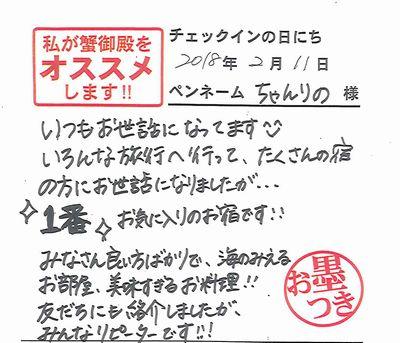 私が蟹御殿を
オススメ
します!!
チェックインの日にち
2018年2月11日
ペンネーム ちゃんりの 様
いつもお世話になってます
いろんな旅行へ行って、たくさんの宿
の方にお世話になりましたが…
1番 お気に入りのお宿です!!
みなさん良い方ばかりで、海のみえる
お部屋、美味すぎるお料理!!
友だちにも紹介しましたが、
みんなリピーターです!!
お墨つき